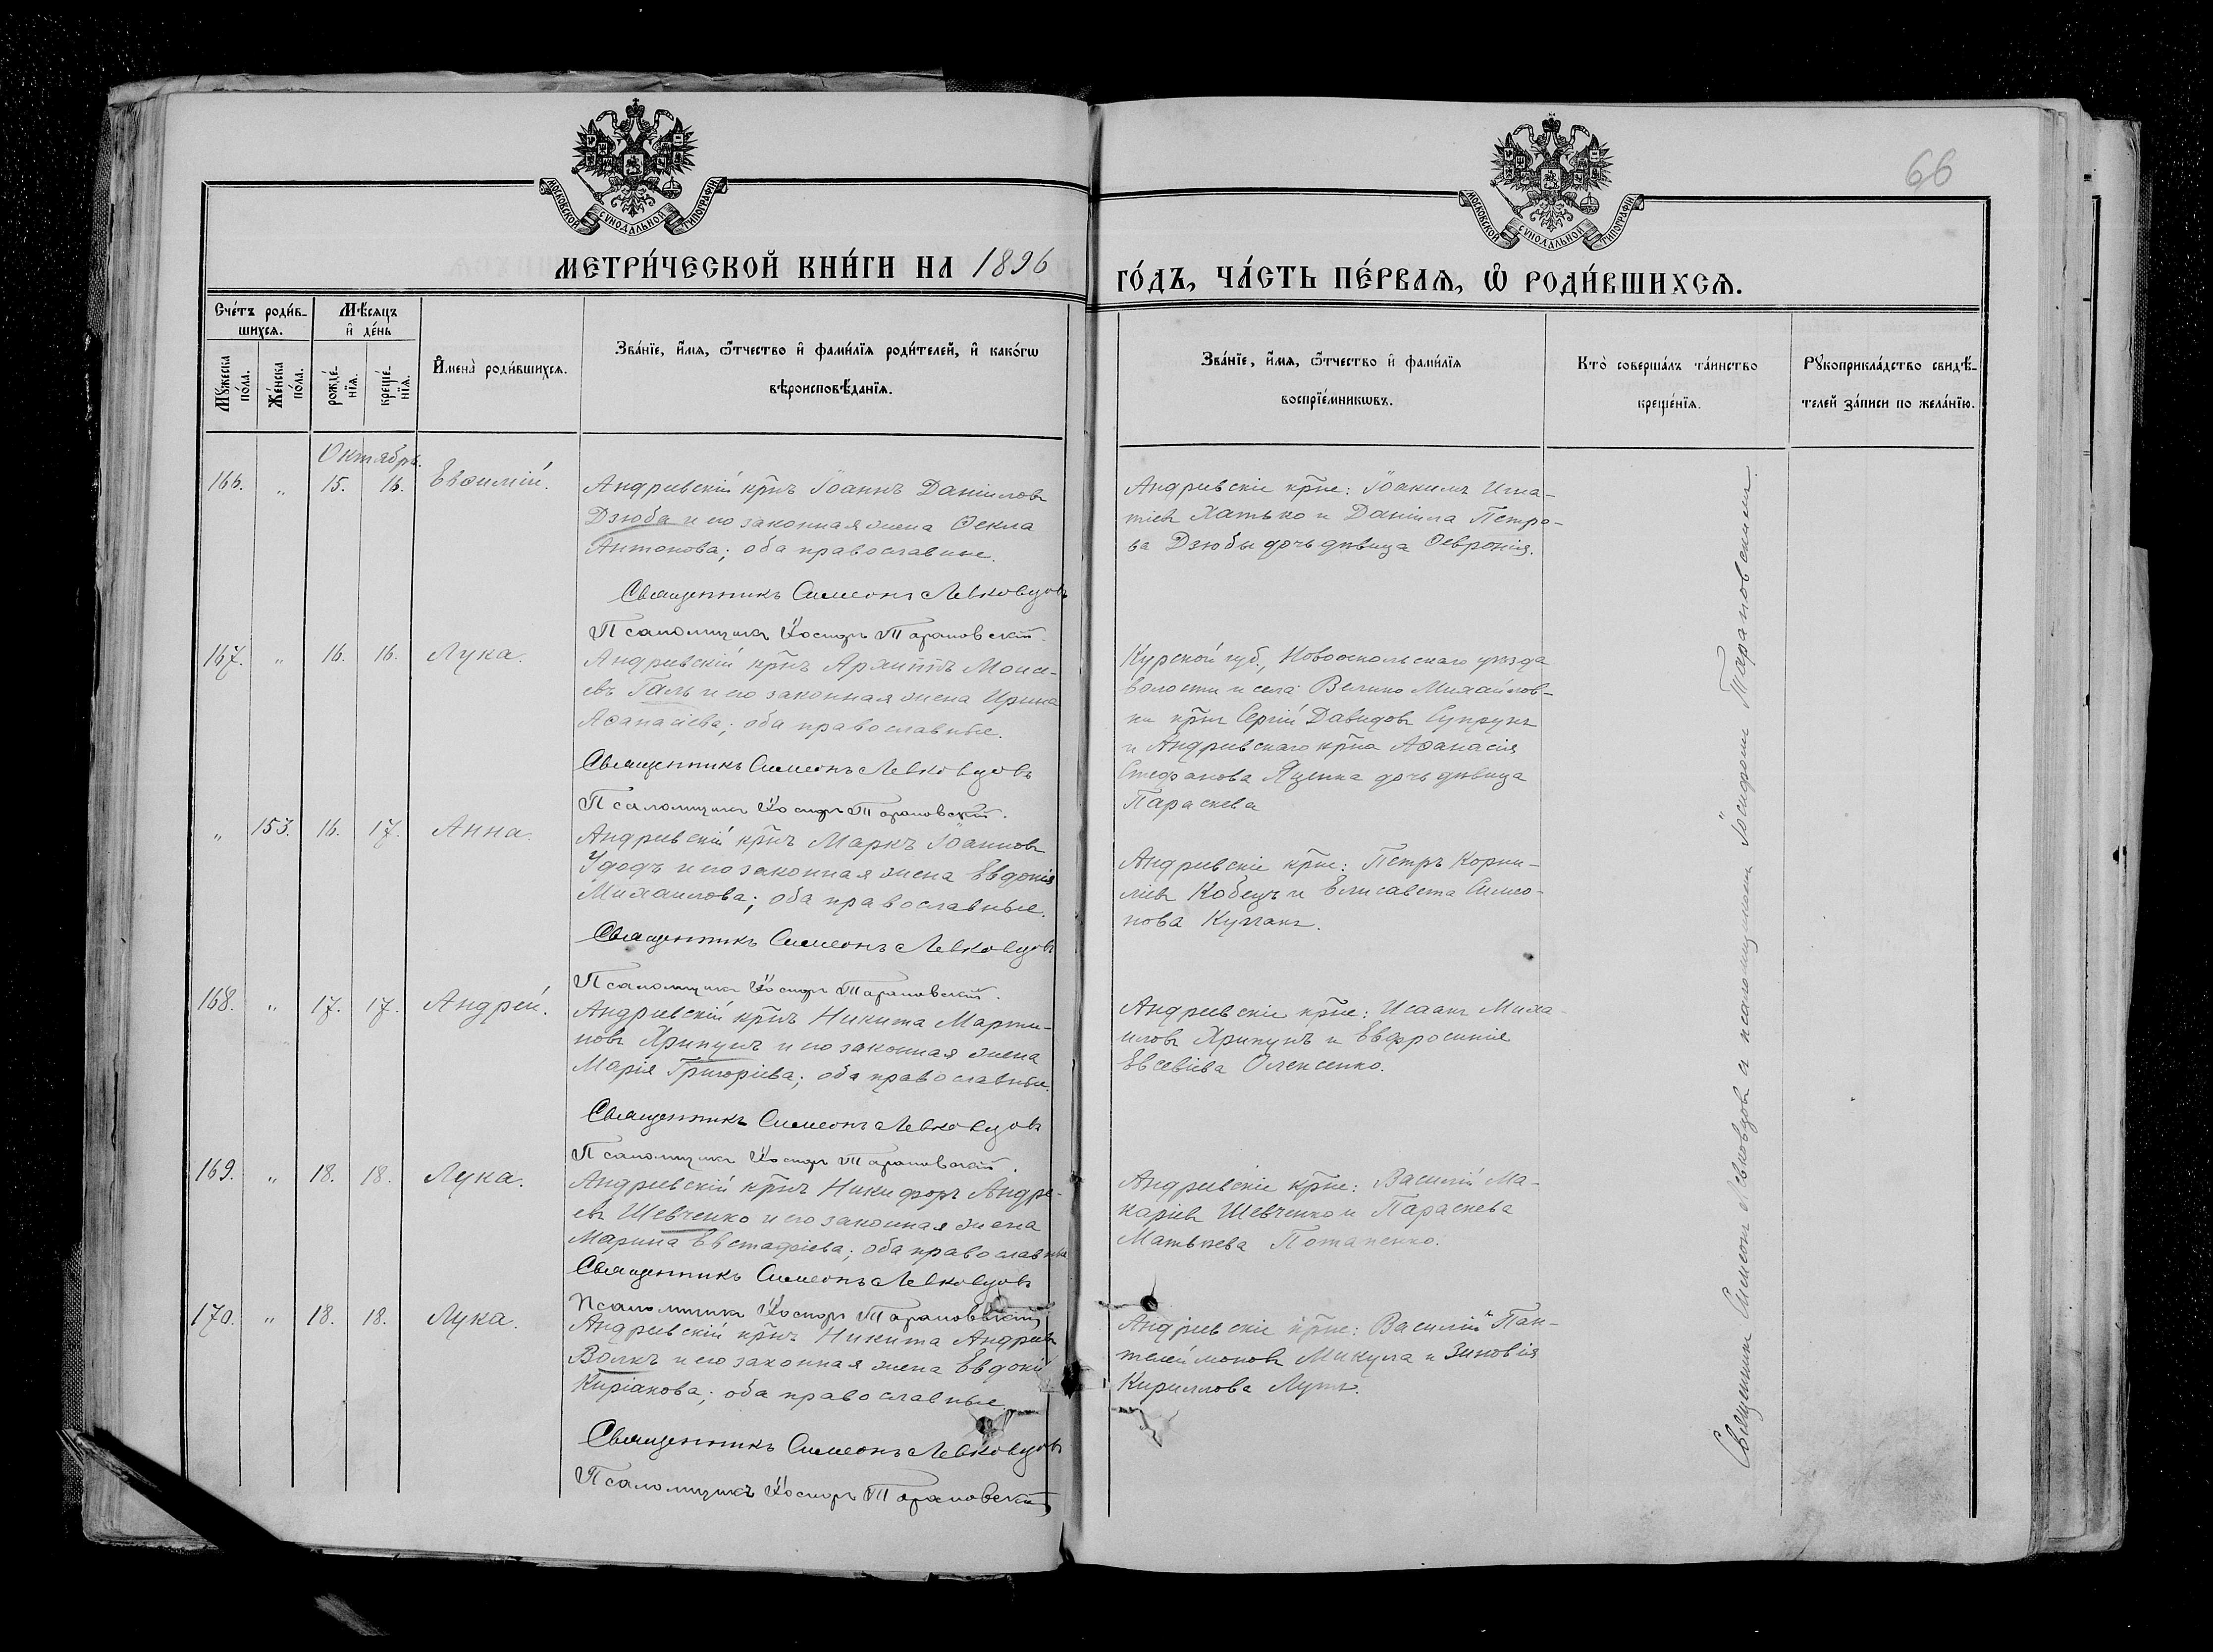 66
МОСКОВСКОЙ СѴНОДАЛЬНОЙ ТИПОГРАФІИ
МОСКОВСКОЙ СѴНОДАЛЬНОЙ ТИПОГРАФІИ
МЕТРИ́ЧЕСКОЙ КНИ́ГИ НА 1896
ГО́ДЪ, ЧА́СТЬ ПЕ́РВАѦ, Ѡ҆ РОДИ́ВШИХСѦ.
Сче́тъ роди́в-
шихсѧ.
Мꙋ́жеска по́ла.
Же́нска по́ла.
Мѣ́сѧцъ
и҆ де́нь
рожде́-
нїѧ.
креще́-
нїѧ.
И҆мена̀ роди́вшихсѧ.
Зва́нїе, и҆́мѧ, ѻ҆́тчество и҆ фами́лїѧ роди́телей, и҆ како́гѡ
вѣроисповѣ́данїѧ.
Зва́нїе, и҆́мѧ, ѻ҆́тчество и҆ фами́лїѧ
воспрїе́мникѡвъ.
Кто̀ соверша́лъ та́инство
креще́нїѧ.
Рꙋкоприкла́дство свидѣ́-
телей за́писи по жела́нїю.
Октябрь.
166. „ 15. 16. Евѳимій.
Андреевскій кр̄нъ Іоаннъ Даніиловъ
Дзюба и его законная жена Ѳекла
Антонова; оба православные.
Священникъ Симеонъ Левковцовъ
Псаломщикъ Іосифъ Тарановскій.
Андреевскіе кр̄не: Іоакимъ Игна-
тіевъ Хатько и Даніила Петро-
ва Дзюбы дочь дѣвица Ѳевронія.
167. „ 16. 16. Лука.
Андреевскій кр̄нъ Архиппъ Моисе-
евъ Галь и его законная жена Ирина
Аѳанасіева; оба православные.
Священникъ Симеонъ Левковцовъ
Псаломщикъ Іосифъ Тарановскій.
Курской губ., Новооскольскаго уѣзда
волости и села Велико Михайлов-
ки кр̄нъ Сергій Давидовъ Супрунъ
и Андреевскаго кр̄на Аѳанасія
Стефанова Яценка дочь дѣвица
Параскева
„ 153. 16. 17. Анна.
Андреевскій кр̄нъ Маркъ Іоанновъ
Удодъ и его законная жена Евдокія
Михаилова; оба православные.
Священникъ Симеонъ Левковцовъ
Псаломщикъ Іосифъ Тарановскій.
Андреевскіе кр̄не: Петръ Корни-
ліевъ Кобецъ и Елисавета Симео-
нова
168. „ 17. 17. Андрей.
Андреевскій кр̄нъ Никита Марти-
новъ Хрипунъ и его законная жена
Марія Григоріева; оба православные.
Священникъ Симеонъ Левковцовъ
Псаломщикъ Іосифъ Тарановскій.
Андреевскіе кр̄не: Исаакъ Миха-
иловъ Хрипунъ и Евфросинія
Евсевіева Олексенко.
169. „ 18. 18. Лука.
Андреевскій кр̄нъ Никифоръ Андре-
евъ Шевченко и его законная жена
Марина Евстафіева; оба православные
Священникъ Симеонъ Левковцовъ
Псаломщикъ Іосифъ Тарановскій
Андреевскіе кр̄не: Василій Ма-
каріевъ Шевченко и Параскева
Матвѣева Потапенко.
170. „ 18. 18. Лука.
Андреевскій кр̄нъ Никита Андреевъ
Волкъ и его законная жена Евдокія
Киріакова; оба православные.
Священникъ Симеонъ Левковцовъ
Псаломщикъ Іосифъ Тарановскій
Андреевскіе кр̄не: Василій Пан-
телеймоновъ Микула и Зиновія
Кириллова
Священникъ Симеонъ Левковцовъ и псаломщикомъ Іосифомъ Тарановскимъ.